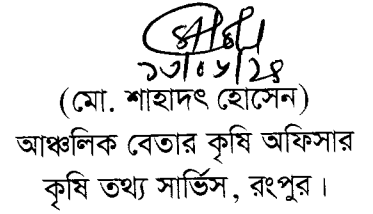 (মো. শাহাদৎ হোসেন)
আঞ্চলিক বেতার কৃষি অফিসার
কৃষি তথ্য সার্ভিস, রংপুর।